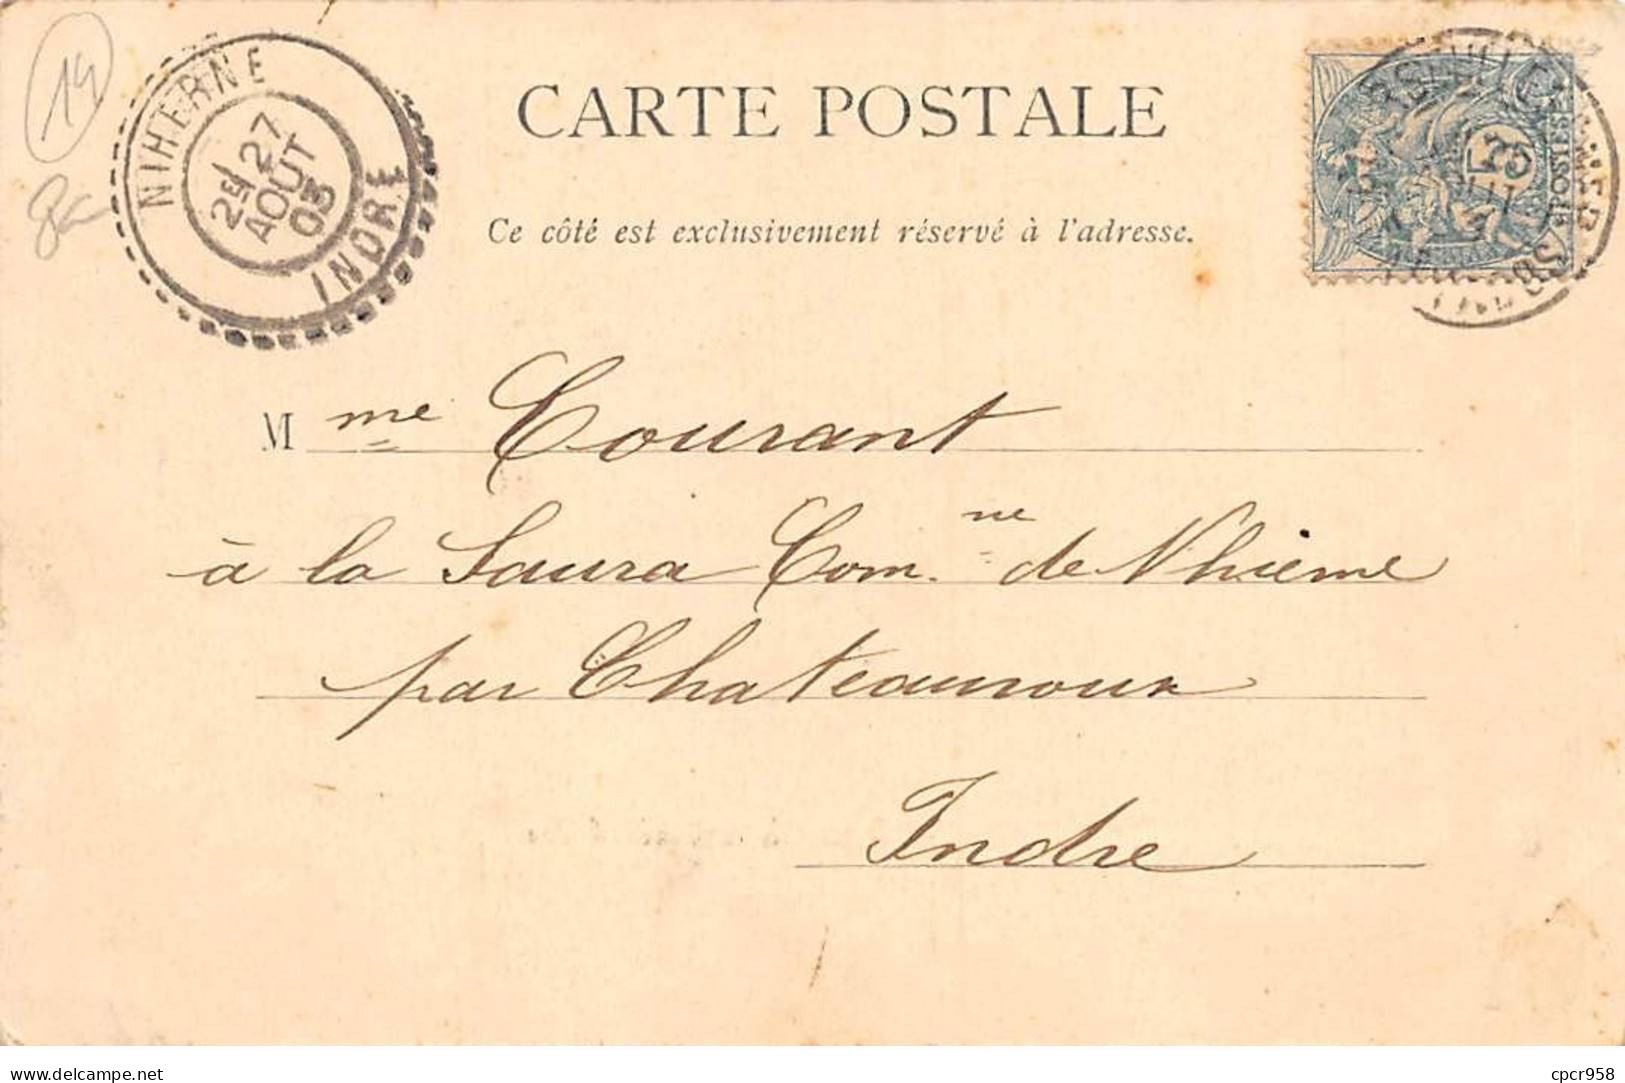 19
NIHERNE
2E 27
AOUT
03
INDRE
CARTE POSTALE
Ce côté est exclusivement réservé à l'adresse.
POSTES
M me Courant
à la Saura Com.ne de Nhieme
par Chateauroux
Indre
delcampe.net
cpcr958